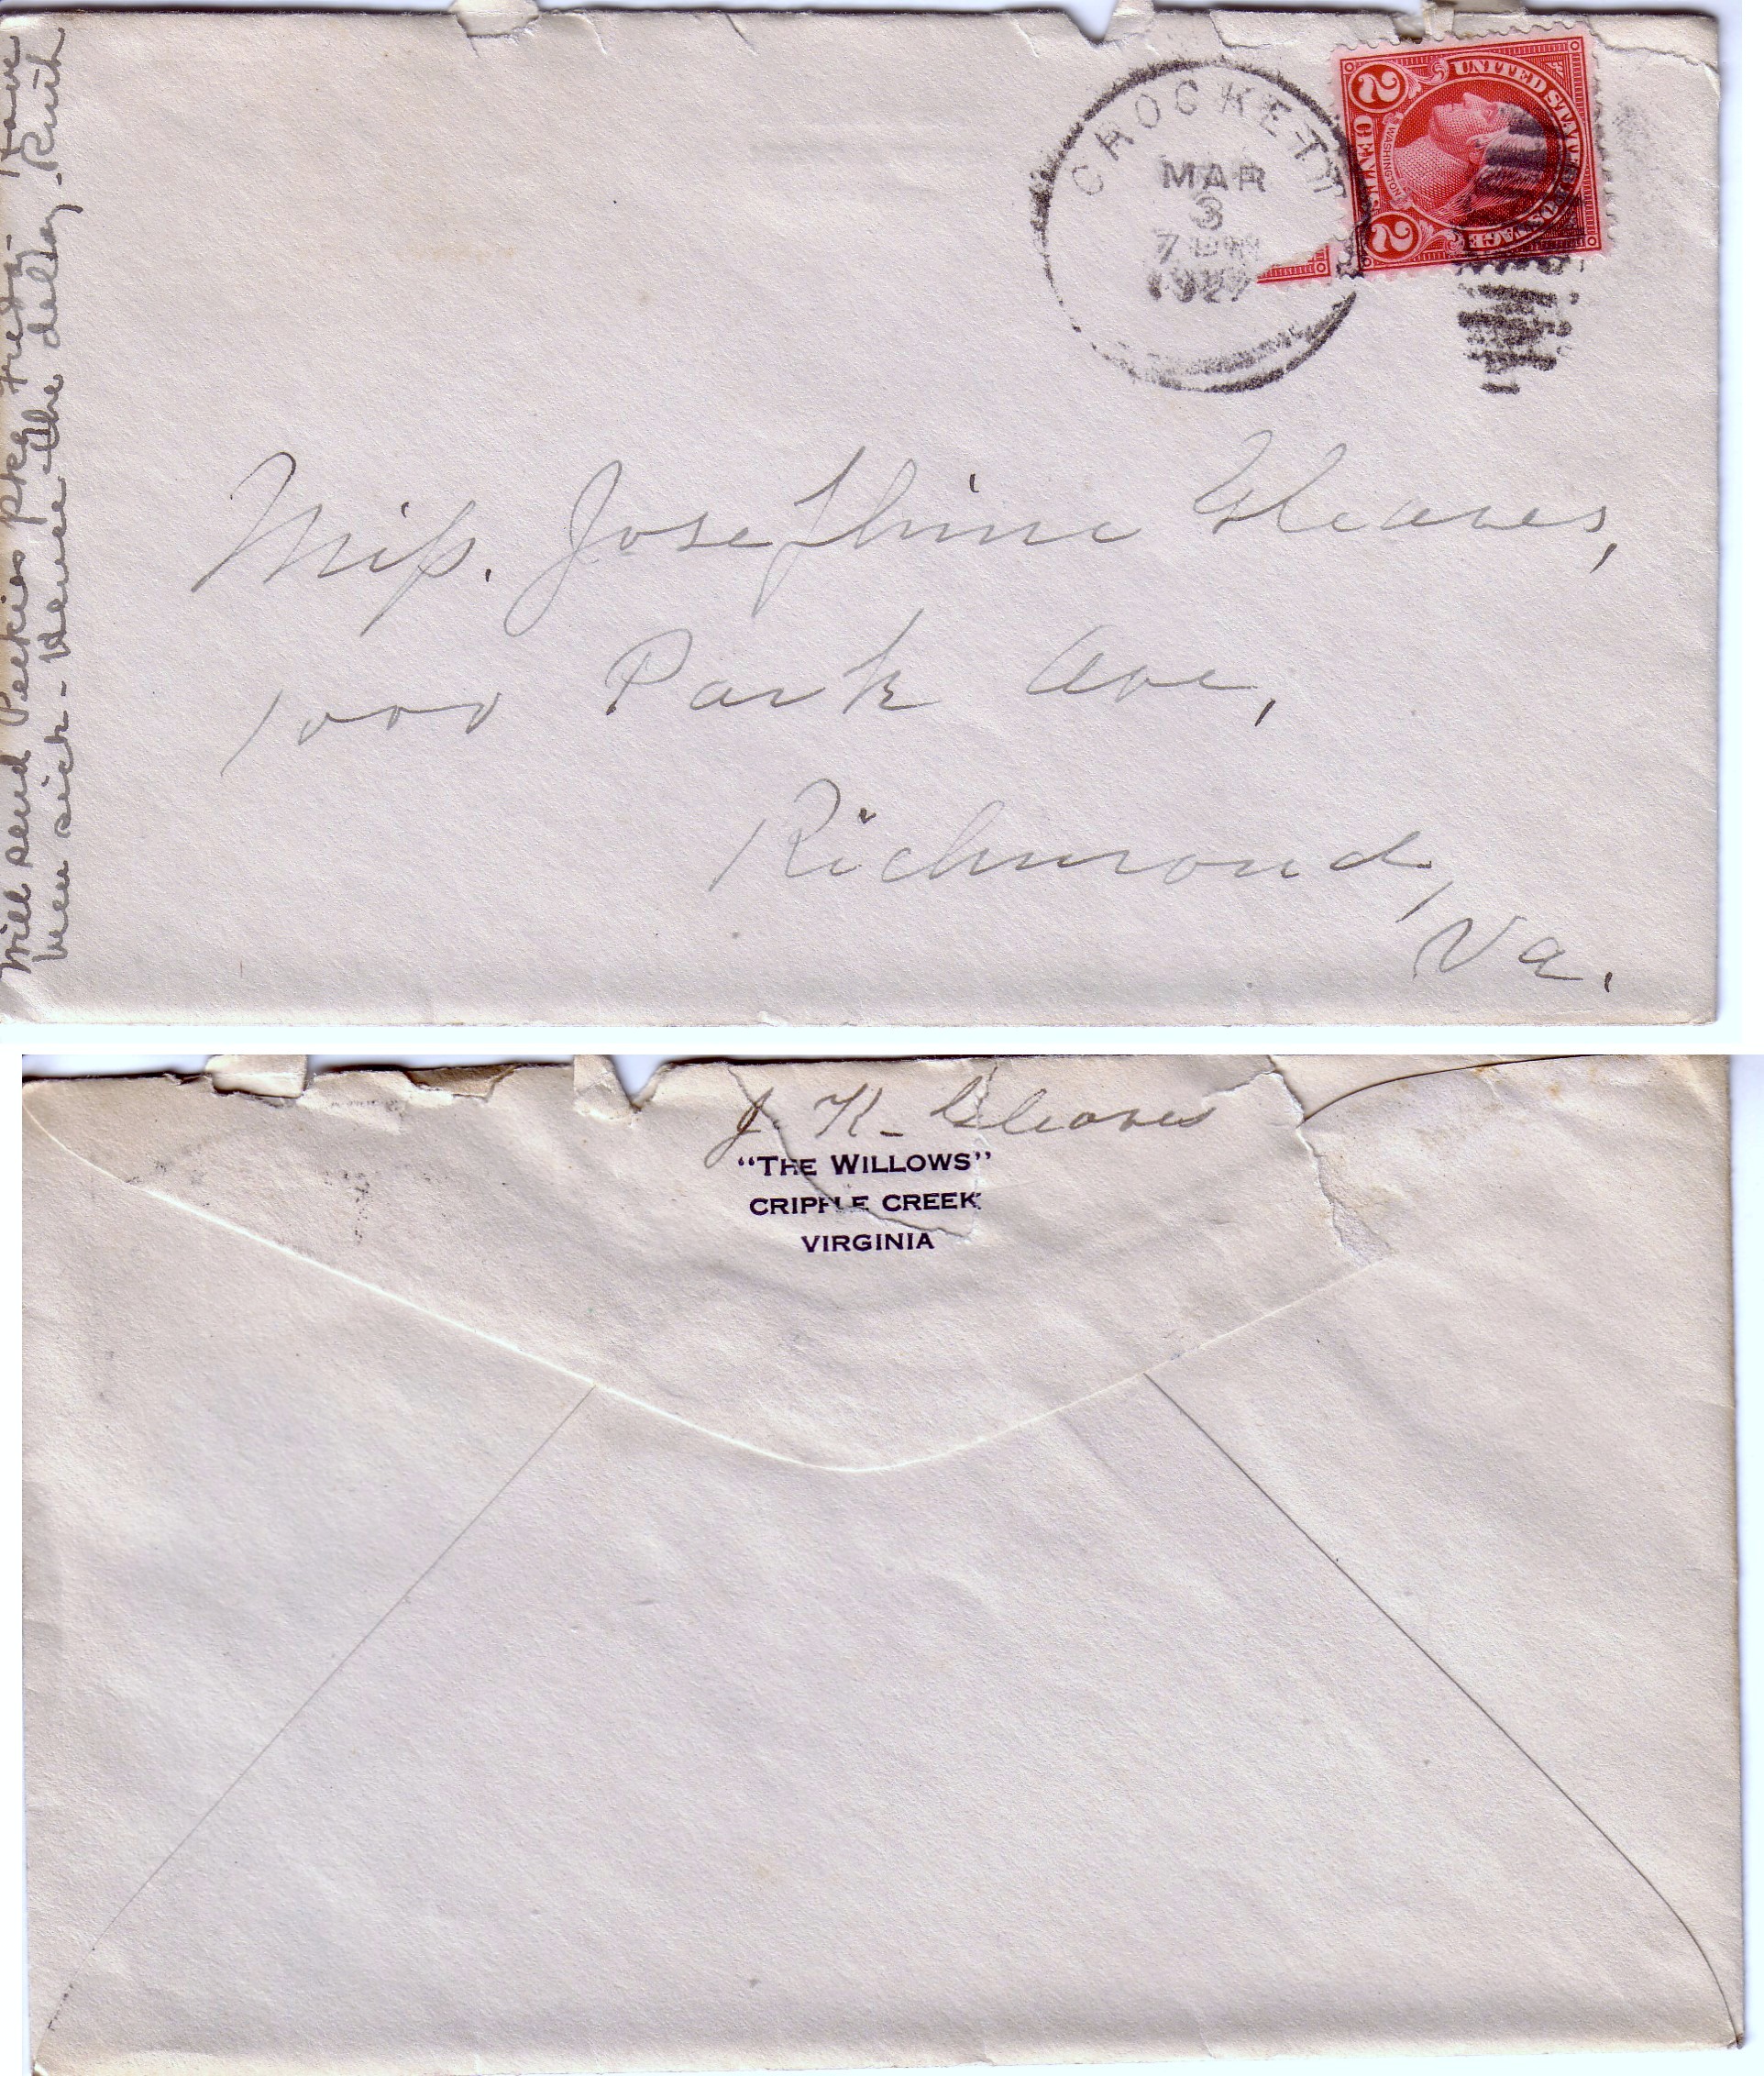 Will send Peekies pkg Friday - Have
been sick - Hence the delay - Ruth
CROCKETT
MAR
3
7 PM
1927
UNITED STATES POSTAGE
WASHINGTON
2 CENTS 2
Miss. Josephine Gleaves,
1000 Park Ave,
Richmond,
Va.
J. K. Gleaves
"THE WILLOWS"
CRIPPLE CREEK
VIRGINIA